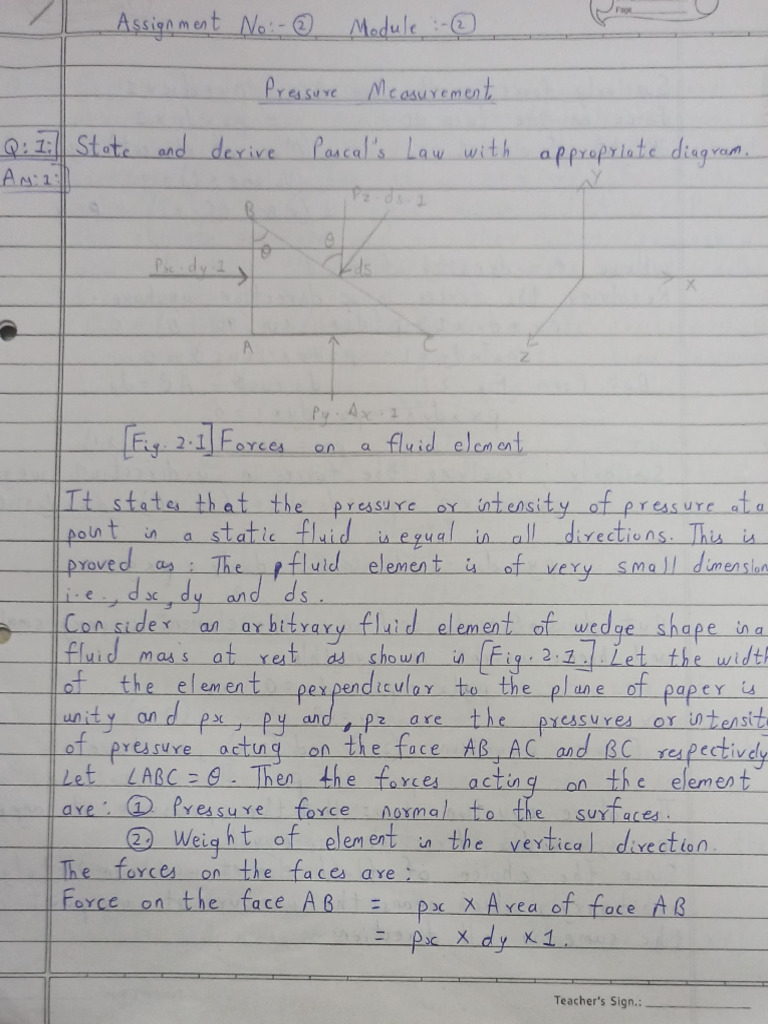 Page
Assignment No:- ② Module :- ②
Pressure Measurement
Q:1:] State and derive Pascal's Law with appropriate diagram.
Ans:1:]
Pz·ds·1
Y
B
θ
θ
Px·dy·1
ds
X
A
C
Z
Py·Δx·1
[Fig. 2.1] Forces on a fluid element
It states that the pressure or intensity of pressure at a
point in a static fluid is equal in all directions. This is
proved as: The fluid element is of very small dimension
i.e., dx, dy and ds.
Consider an arbitrary fluid element of wedge shape in a
fluid mass at rest as shown in [Fig. 2.1.]. Let the width
of the element perpendicular to the plane of paper is
unity and px, py and, pz are the pressures or intensit
of pressure acting on the face AB, AC and BC respectively
Let ∠ABC = θ. Then the forces acting on the element
are: ① Pressure force normal to the surfaces.
② Weight of element in the vertical direction.
The forces on the faces are:
Force on the face AB = px × Area of face AB
= px × dy × 1.
Teacher's Sign.: